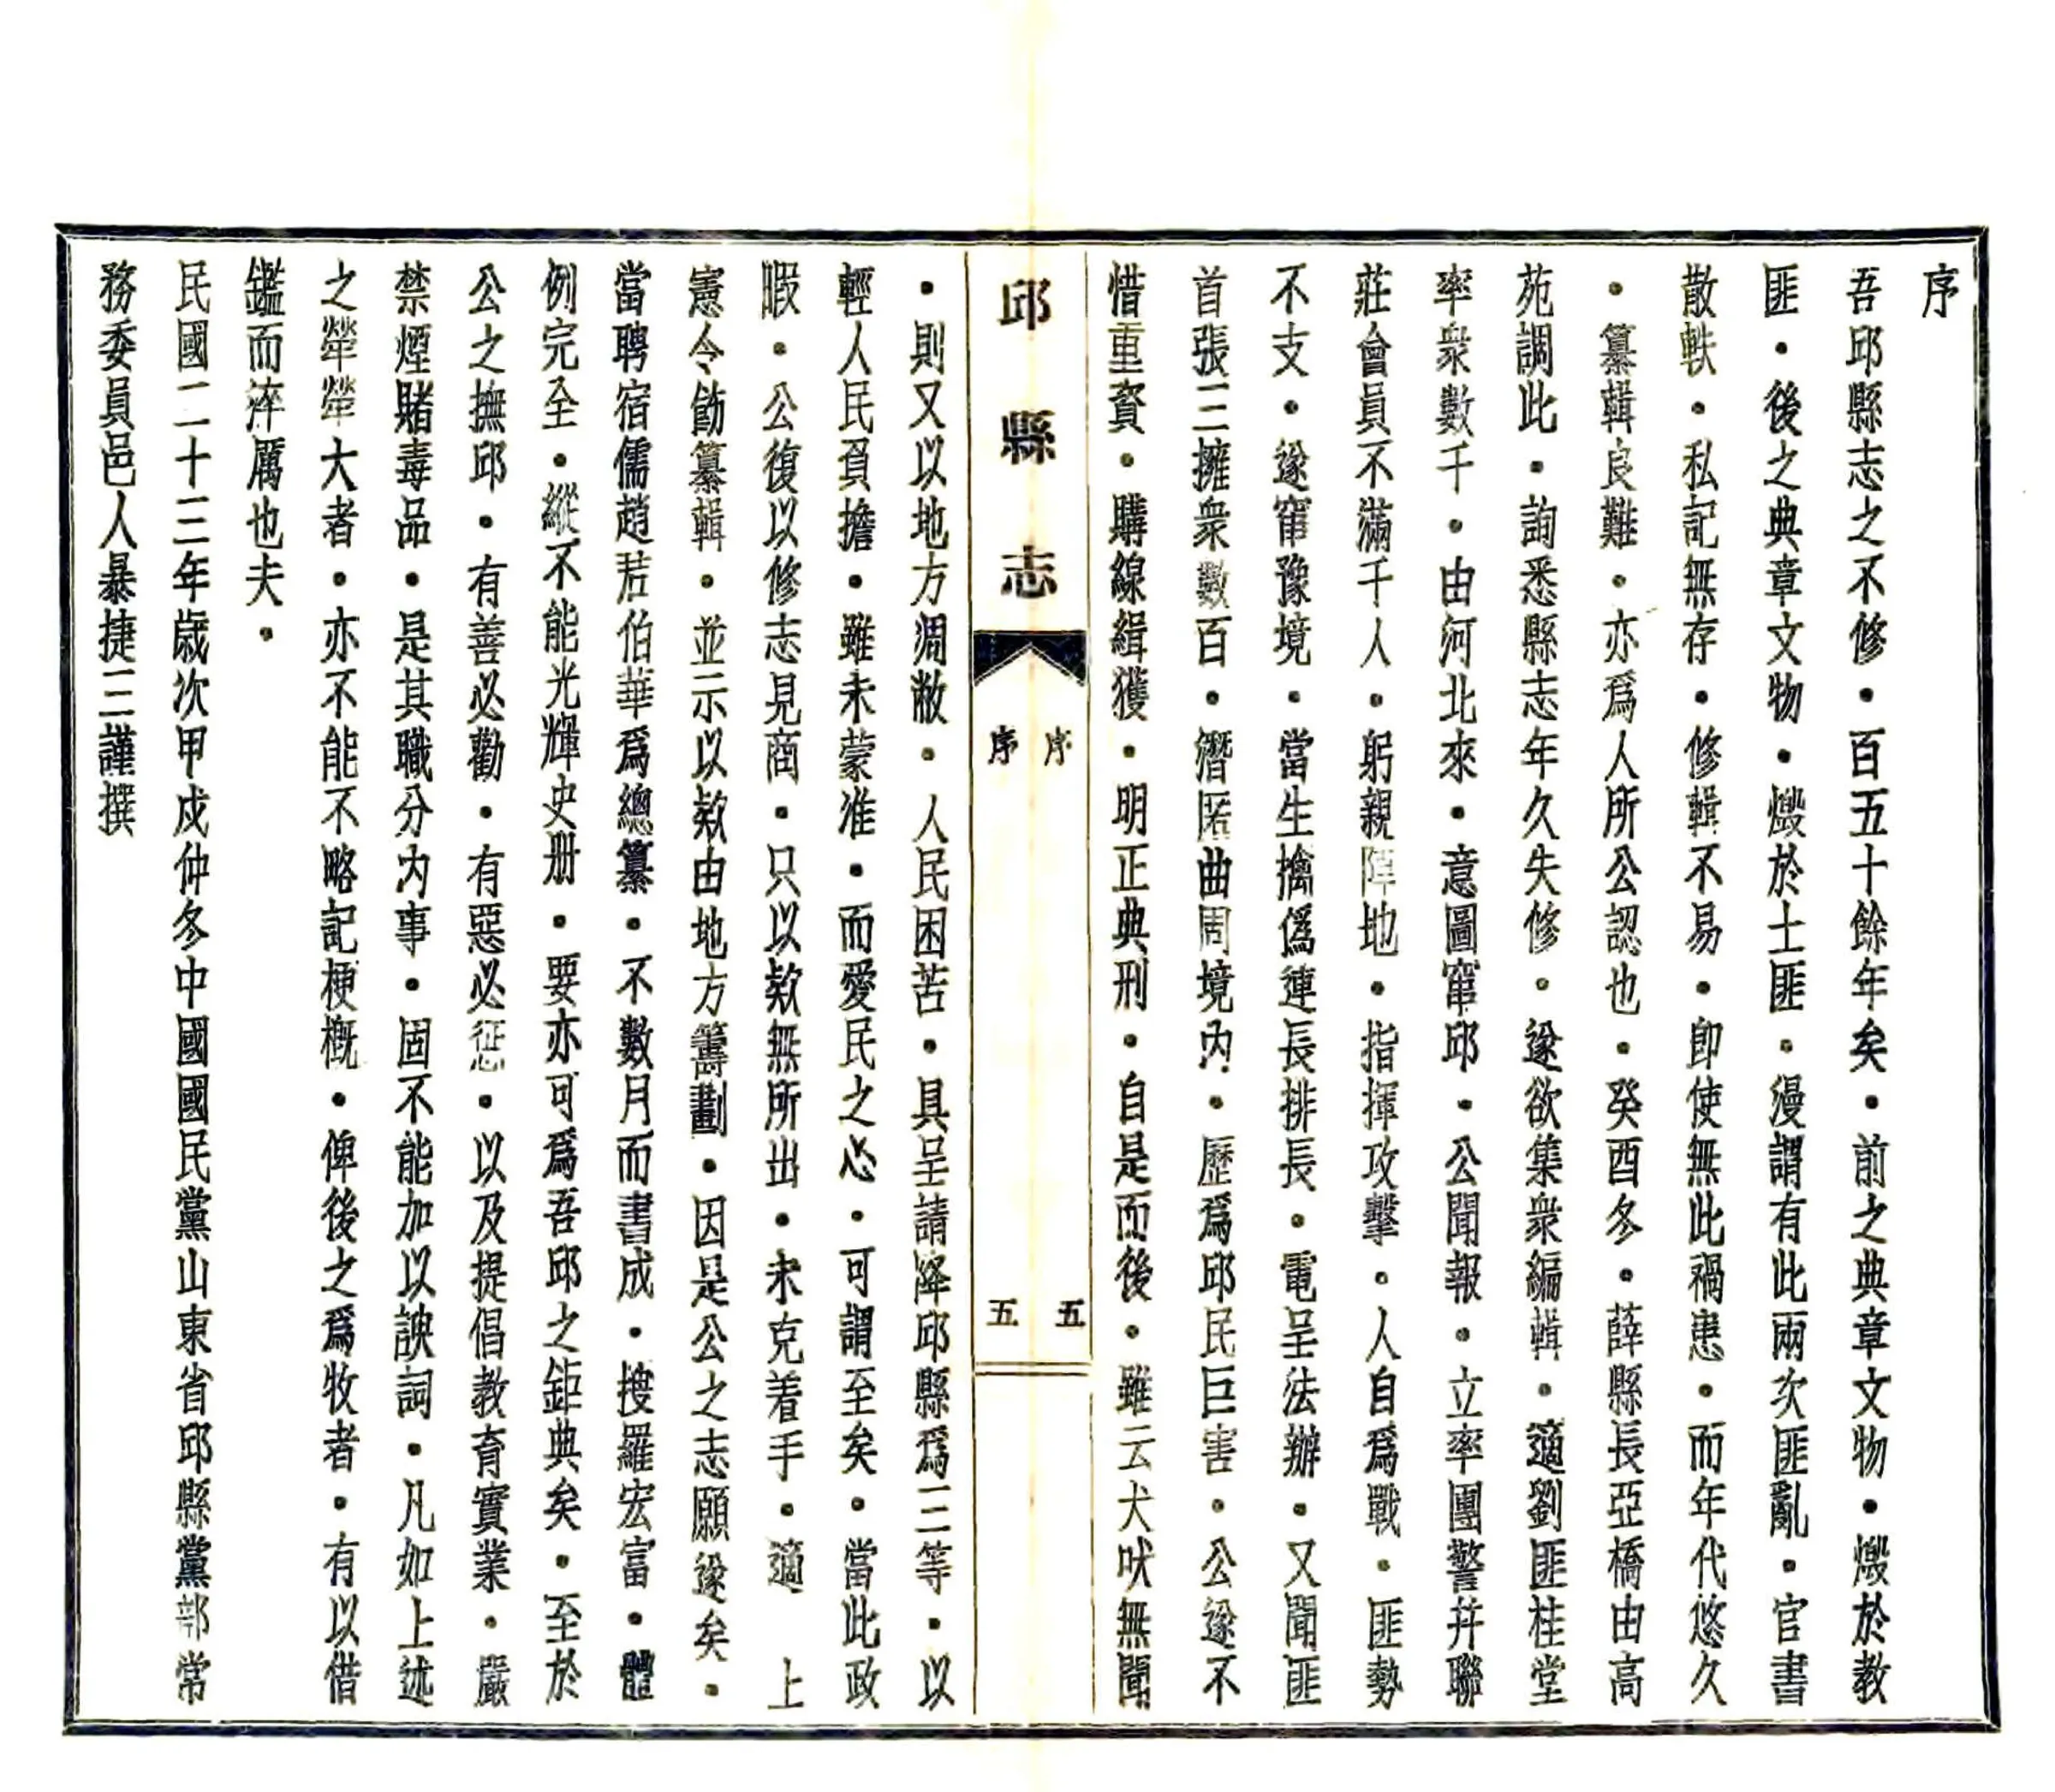 序
吾邱縣志之不修・百五十餘年矣・前之典章文物・燬於教
匪・後之典章文物・燬於土匪・漫謂有此兩次匪亂・官書
散軼・私記無存・修輯不易・即使無此禍患・而年代悠久
・纂輯良難・亦爲人所公認也・癸酉冬・薛縣長亞橋由高
苑調此・詢悉縣志年久失修・遂欲集衆編輯・適劉匪桂堂
率衆數千・由河北來・意圖竄邱・公聞報・立率團警幷聯
莊會員不滿千人・躬親陣地・指揮攻擊・人自爲戰・匪勢
不支・遂竄豫境・當生擒僞連長排長・電呈法辦・又聞匪
首張三擁衆數百・潛匿曲周境內・歷爲邱民巨害・公遂不
惜重資・購線緝獲・明正典刑・自是而後・雖云犬吠無聞
邱縣志
序 五
序 五
・則又以地方凋敝・人民困苦・具呈請降邱縣爲三等・以
輕人民負擔・雖未蒙准・而愛民之心・可謂至矣・當此政
暇・公復以修志見商・只以欵無所出・未克着手・適 上
憲令飭纂輯・並示以欵由地方籌劃・因是公之志願遂矣・
當聘宿儒趙君伯華爲總纂・不數月而書成・搜羅宏富・體
例完全・縱不能光輝史册・要亦可爲吾邱之鉅典矣・至於
公之撫邱・有善必勸・有惡必懲・以及提倡教育實業・嚴
禁煙賭毒品・是其職分內事・固不能加以諛詞・凡如上述
之犖犖大者・亦不能不略記梗概・俾後之爲牧者・有以借
鑑而淬厲也夫・
民國二十三年歲次甲戌仲冬中國國民黨山東省邱縣黨部常
務委員邑人暴捷三謹撰